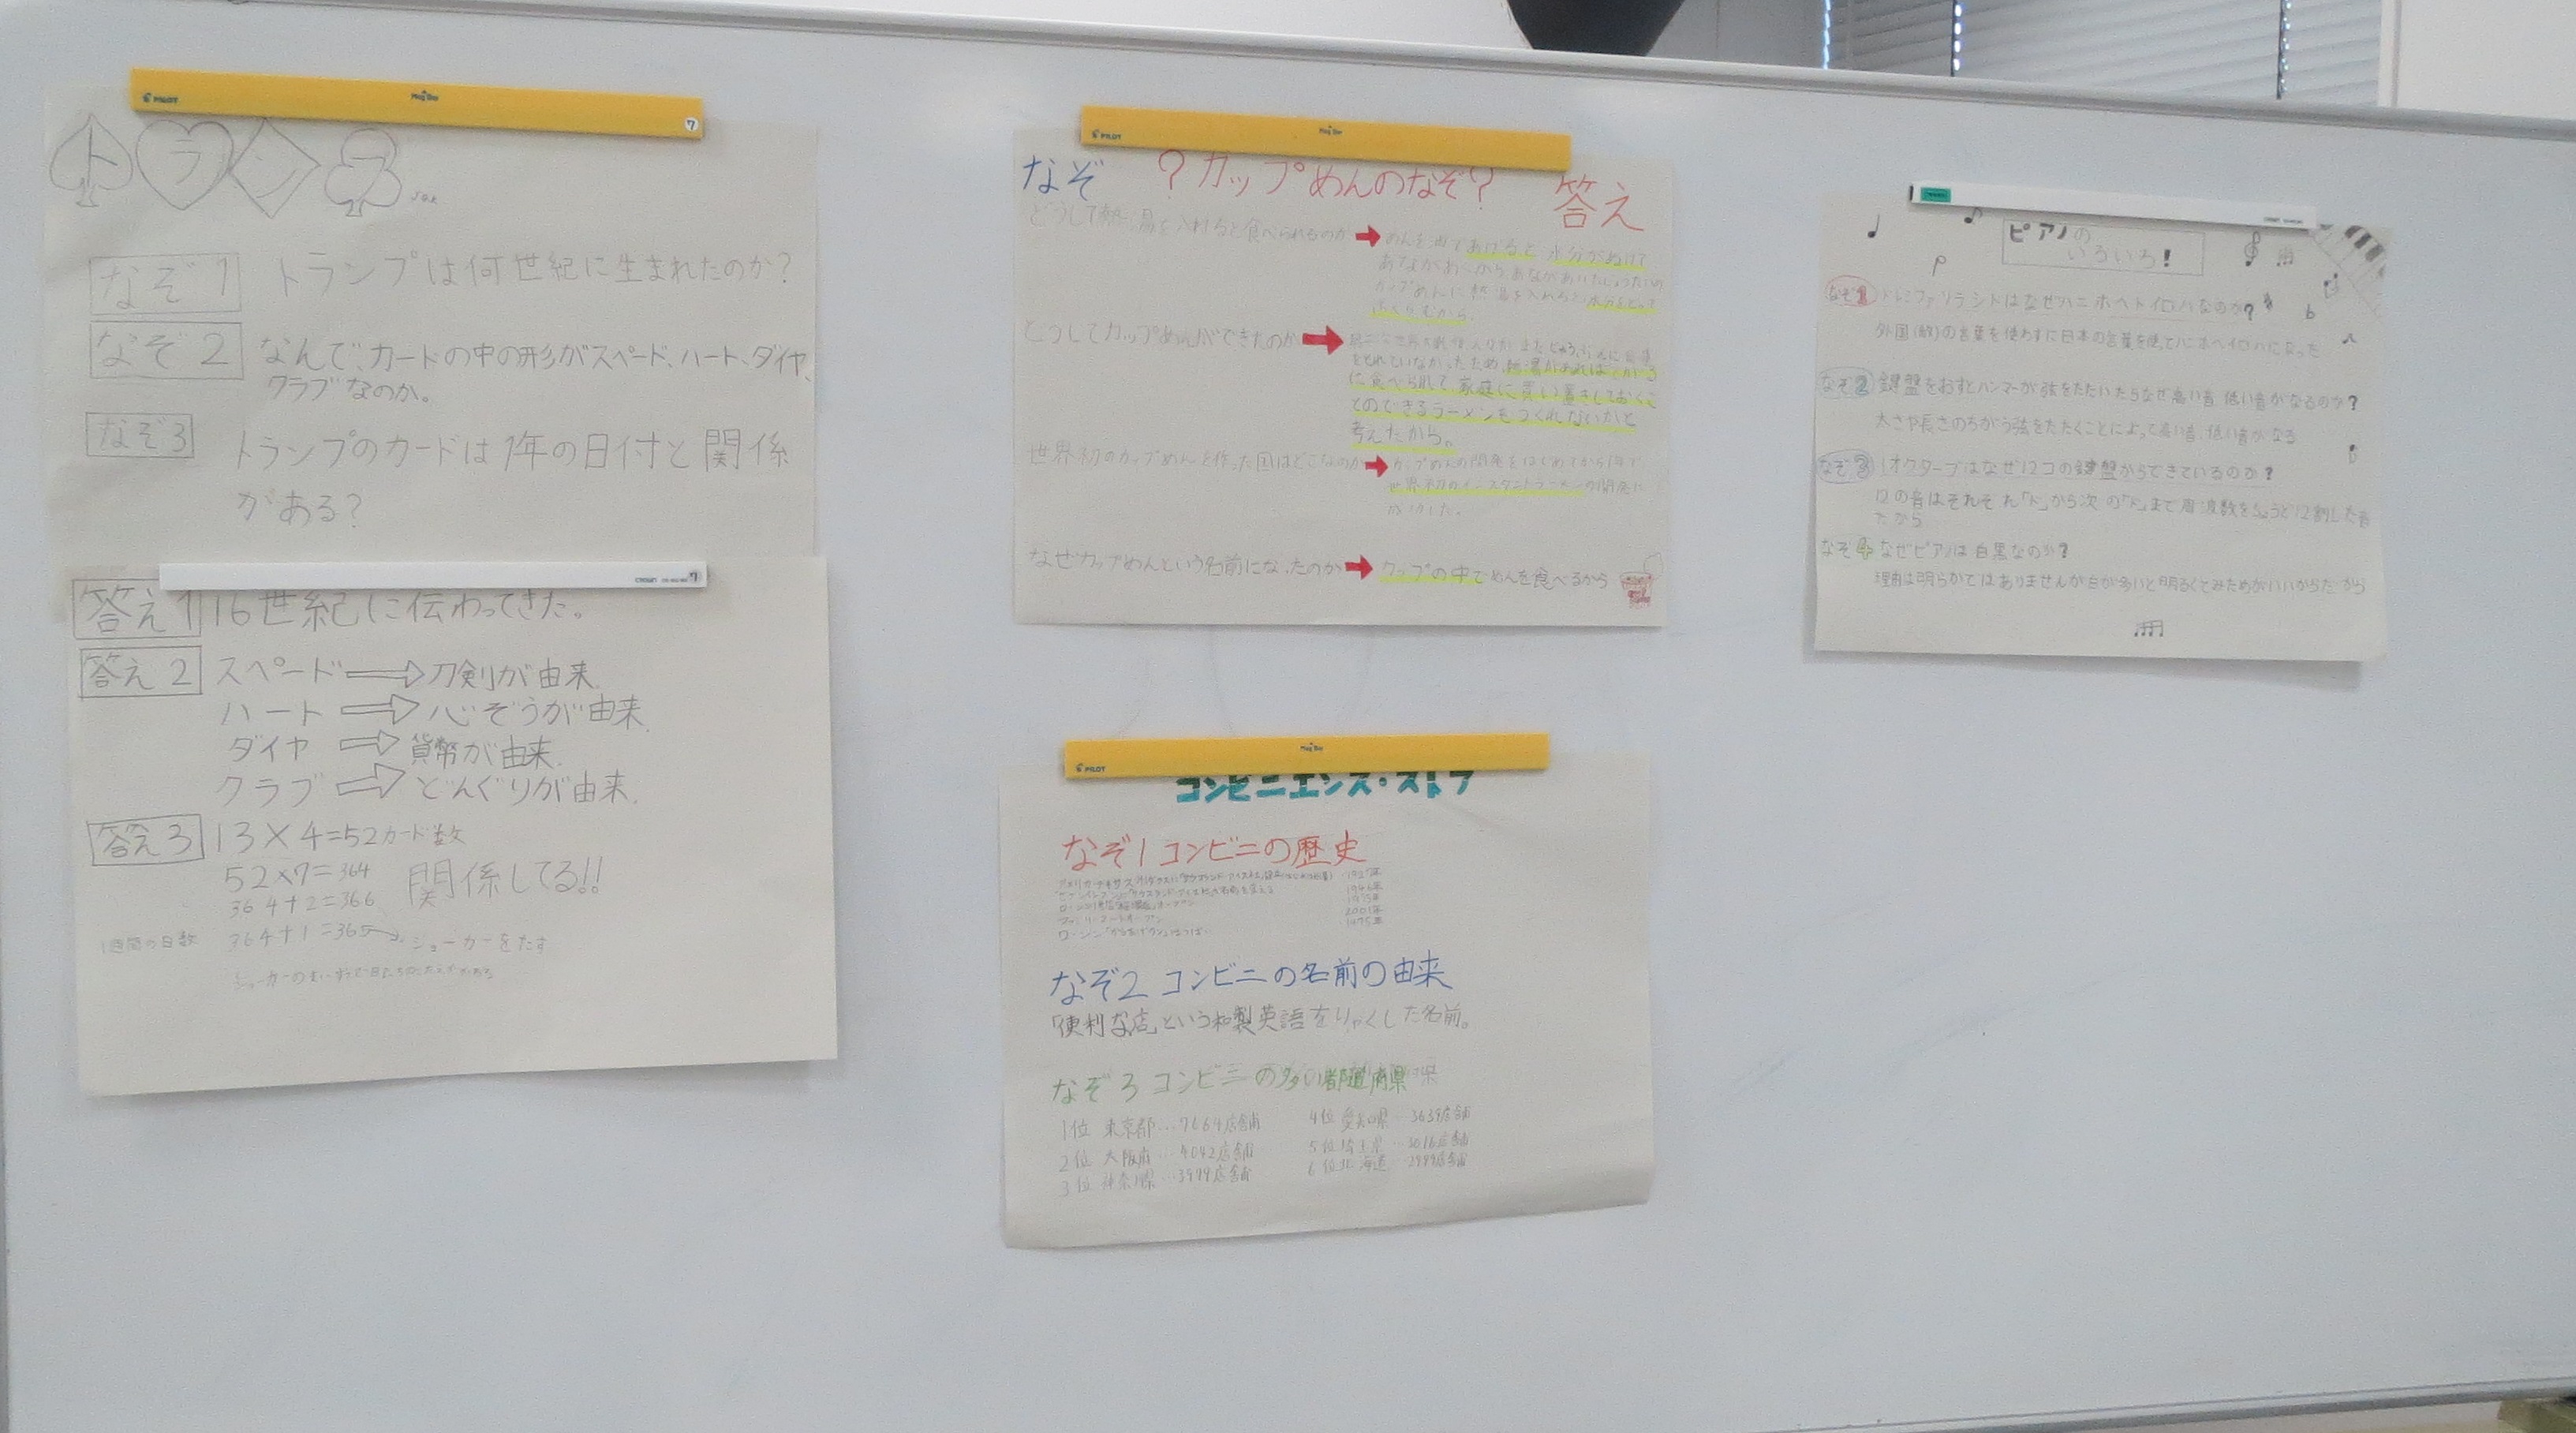 PILOT
Mag Bar
7
トランプ
なぞ1 トランプは何世紀に生まれたのか?
なぞ2 なんで、カードの中の形がスペード、ハート、ダイヤ、
クラブなのか。
なぞ3 トランプのカードは1年の日付と関係
がある?
CROWN
答え1 16世紀に伝わってきた。
答え2 スペード 刀剣が由来.
ハート 心ぞうが由来.
ダイヤ 貨幣が由来.
クラブ どんぐりが由来.
答え3 13×4=52カード数
52×7=364
関係してる!!
364+2=366
1週間の日数
364+1=365 ジョーカーをたす
PILOT
Mag Bar
なぞ ?カップめんのなぞ? 答え
どうして熱湯を入れると食べられるのか
めんを油であげると水分がぬけて
どうしてカップめんができたのか
に食べられて家庭に買い置きしておくこ
とのできるラーメンをつくれないかと
考えたから。
世界初のカップめんを作った国はどこなのか
カップめんの開発をはじめてから1年で
世界初のインスタントラーメンの開発に
成功した。
なぜカップめんという名前になったのか
カップの中でめんを食べるから
PILOT
Mag Bar
コンビニエンス・ストア
なぞ1 コンビニの歴史
1927年
1946年
1975年
2001年
なぞ2 コンビニの名前の由来
「便利な店」という和製英語をりゃくした名前。
なぞ3 コンビニの多い都道府県
1位 東京都…7664店舗
2位 大阪府…4042店舗
3位 神奈川県…3979店舗
4位 愛知県…3639店舗
5位 埼玉県…3016店舗
6位 北海道…2999店舗
CROWN
ピアノの
いろいろ!
なぞ1 ドレミファソラシドはなぜハニホヘトイロハなのか?
外国(敵)の言葉を使わずに日本の言葉を使ってハニホヘトイロハになった
なぞ2 鍵盤をおすとハンマーが弦をたたいたらなぜ高い音 低い音がなるのか?
太さや長さのちがう弦をたたくことによって高い音、低い音がなる
なぞ3 1オクターブはなぜ12コの鍵盤からできているのか?
12の音はそれぞれ「ド」から次の「ド」まで周波数をちょうど12割した音
だから
なぞ4 なぜピアノは白黒なのか?
理由は明らかではありませんが白が多いと明るくてみためがいいからだから